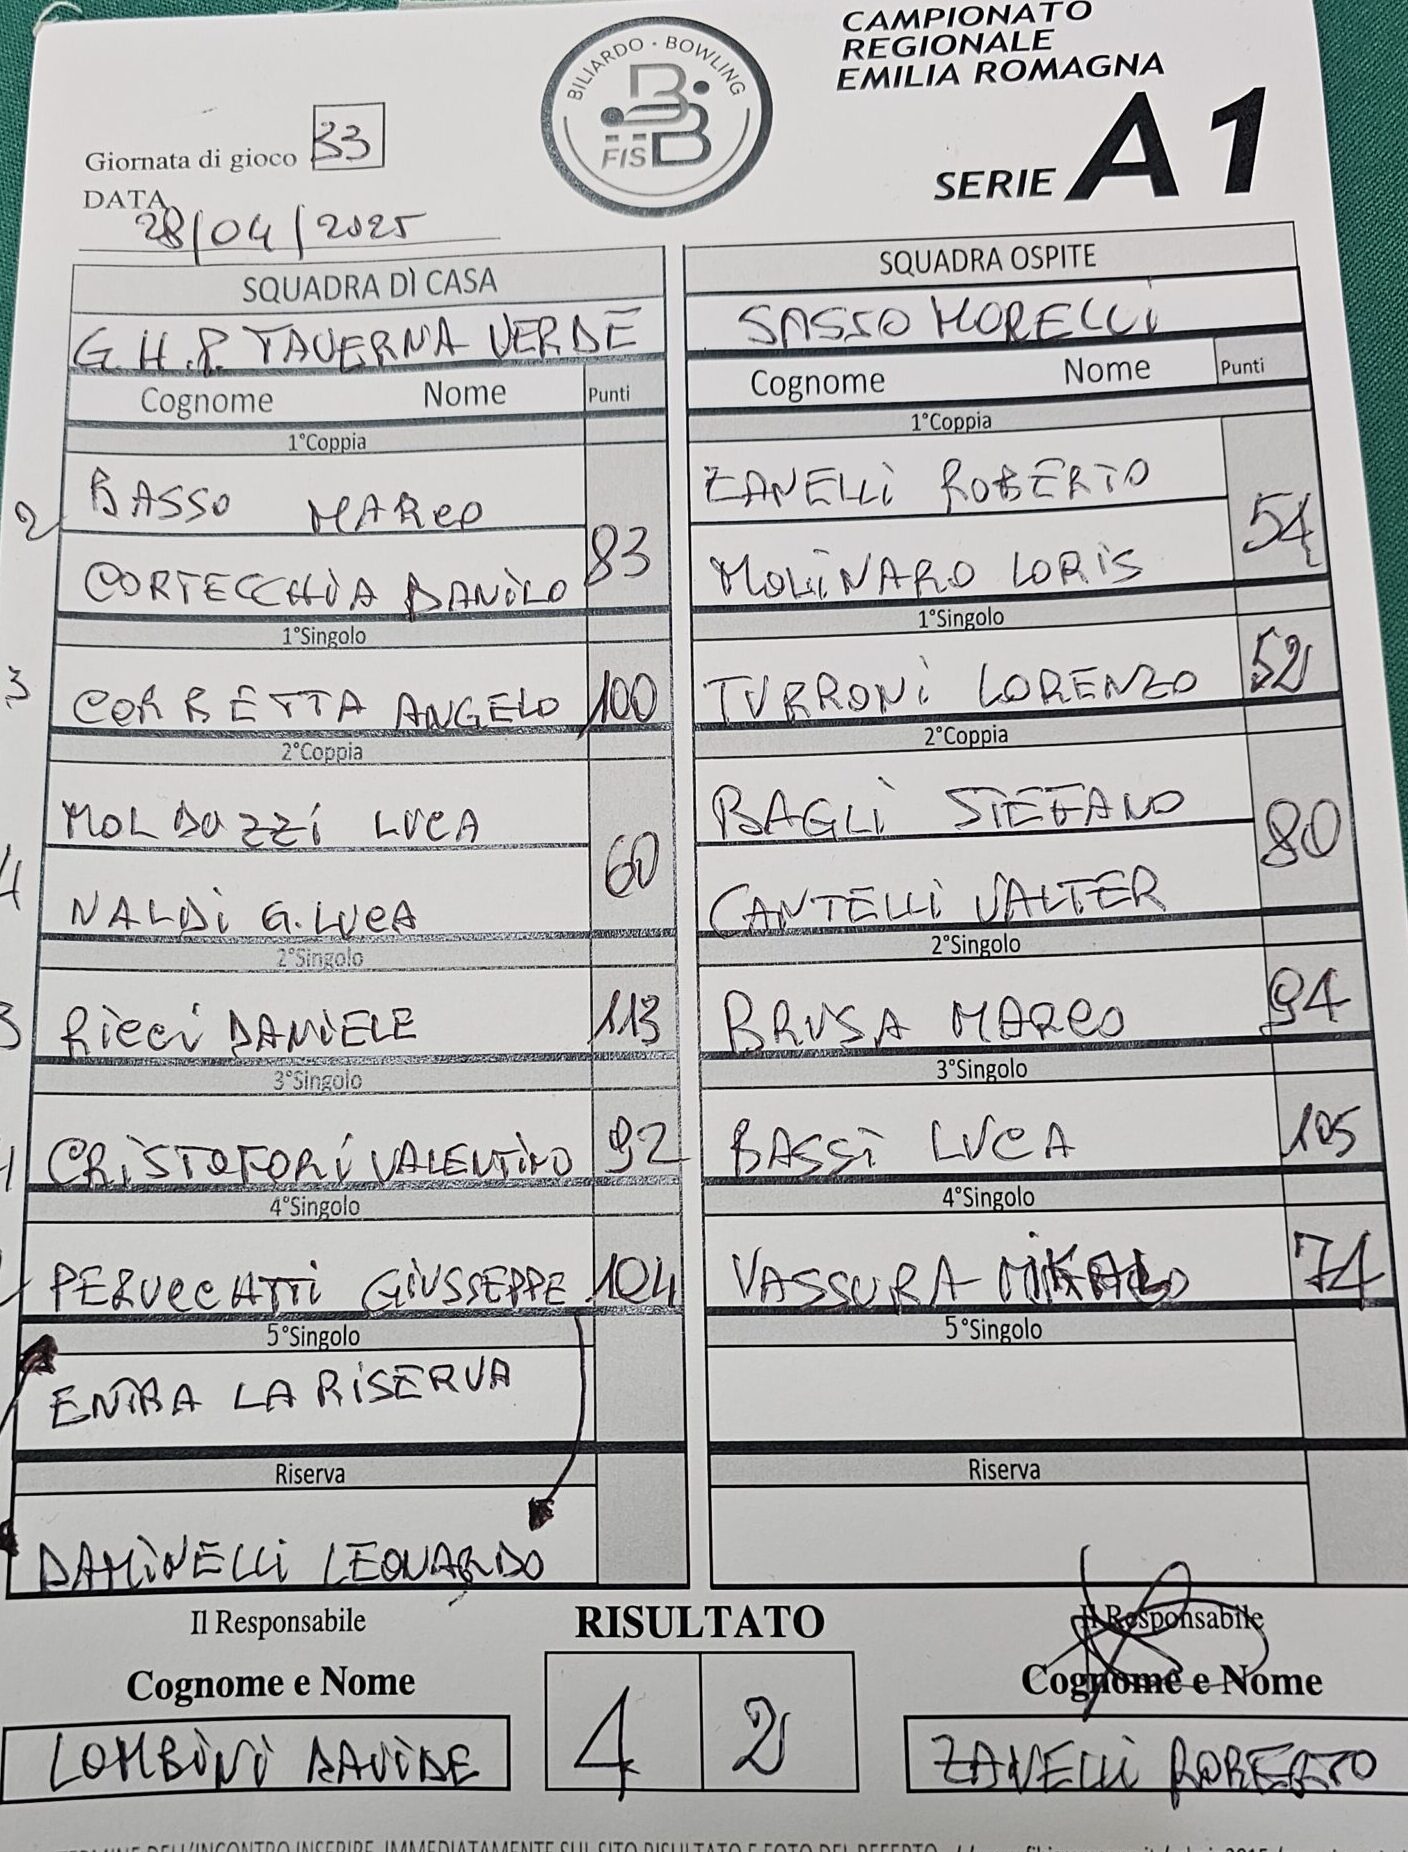 CAMPIONATO
REGIONALE
EMILIA ROMAGNA
SERIE A1
BILIARDO · BOWLING
FISBB
Giornata di gioco 33
DATA
28/04/2025
SQUADRA DÌ CASA
G.H.P. TAVERNA VERDE
Cognome Nome Punti
1°Coppia
2 BASSO MARCO
CORTECCHIA DANILO 83
1°Singolo
3 CORBETTA ANGELO 100
2°Coppia
MOLDUZZI LUCA
4 NALDI G.LUCA 60
2°Singolo
3 RICCI DANIELE 113
3°Singolo
CRISTOFORI VALENTINO 92
4°Singolo
PERUCCHATTI GIUSSEPPE 104
5°Singolo
ENTRA LA RISERVA
Riserva
DAMINELLI LEONARDO
SQUADRA OSPITE
SASSO MORELLI
Cognome Nome Punti
1°Coppia
ZANELLI ROBERTO
MOLINARO LORIS 54
1°Singolo
TURRONI LORENZO 52
2°Coppia
BAGLI STEFANO
CANTELLI VALTER 80
2°Singolo
BRUSA MARCO 94
3°Singolo
BASSI LUCA 105
4°Singolo
VASSURA 74
5°Singolo
Riserva
Il Responsabile
Cognome e Nome
LOMBINI DAVIDE
RISULTATO
4 2
Il Responsabile
Cognome e Nome
ZANELLI ROBERTO
DELL'INCONTRO INSERIRE IMMEDIATAMENTE SUL SITO RISULTATO E FOTO DEL REFERTO